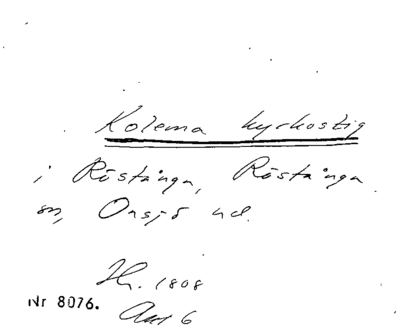 Kolema kyrkostig
i Röstånga, Röstånga
sn, Onsjö hd.
H. 1808
Nr 8076.
Akt 6